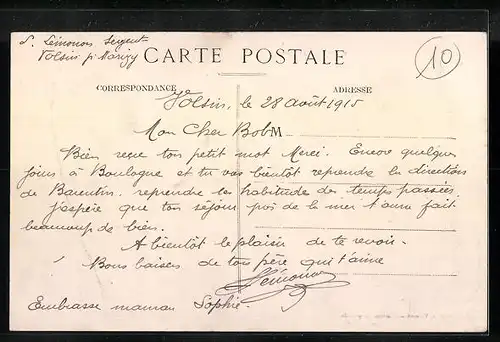 S. Lémonon Sergent
Volsin p<sup>r</sup> Marizy
CARTE POSTALE
10
CORRESPONDANCE
ADRESSE
Volsin, le 28 août 1915
Mon Cher Bob
M
Bien reçu ton petit mot Merci. Encore quelques
jours à Boulogne et tu vas bientôt reprendre la direction
de Barentin. reprendre les habitudes des temps passées
j'espère que ton séjour près de la mer t'aura fait
beaucoup de bien.
A bientôt le plaisir de te revoir.
Bons baisers de ton père qui t'aime
Lémonon
Embrasse maman Sophie.